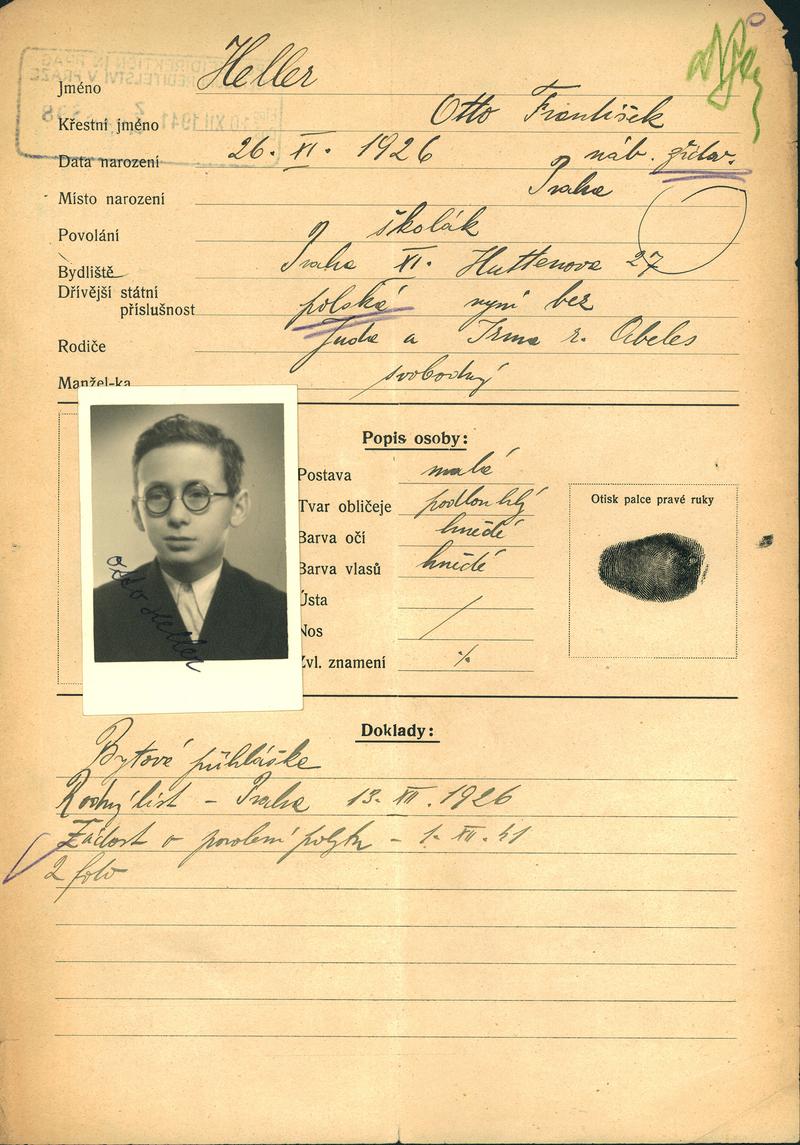 Jméno Heller
Křestní jméno Otto František
Data narození 26. XI. 1926 náb. židov.
Místo narození Praha
Povolání školák
Bydliště Praha XI. Huttenova 27
Dřívější státní
příslušnost polská nyní bez
Rodiče Juda a Irma r. Abeles
Manžel-ka svobodný
Popis osoby:
Postava malá
Tvar obličeje podlouhlý
Barva očí hnědé
Barva vlasů hnědé
Ústa /
Nos
Zvl. znamení %
Otisk palce pravé ruky
Otto Heller
Doklady:
Bytová přihláška
Rodný list – Praha 13. XII. 1926
Žádost o povolení pobytu – 1. XII. 41
2 foto